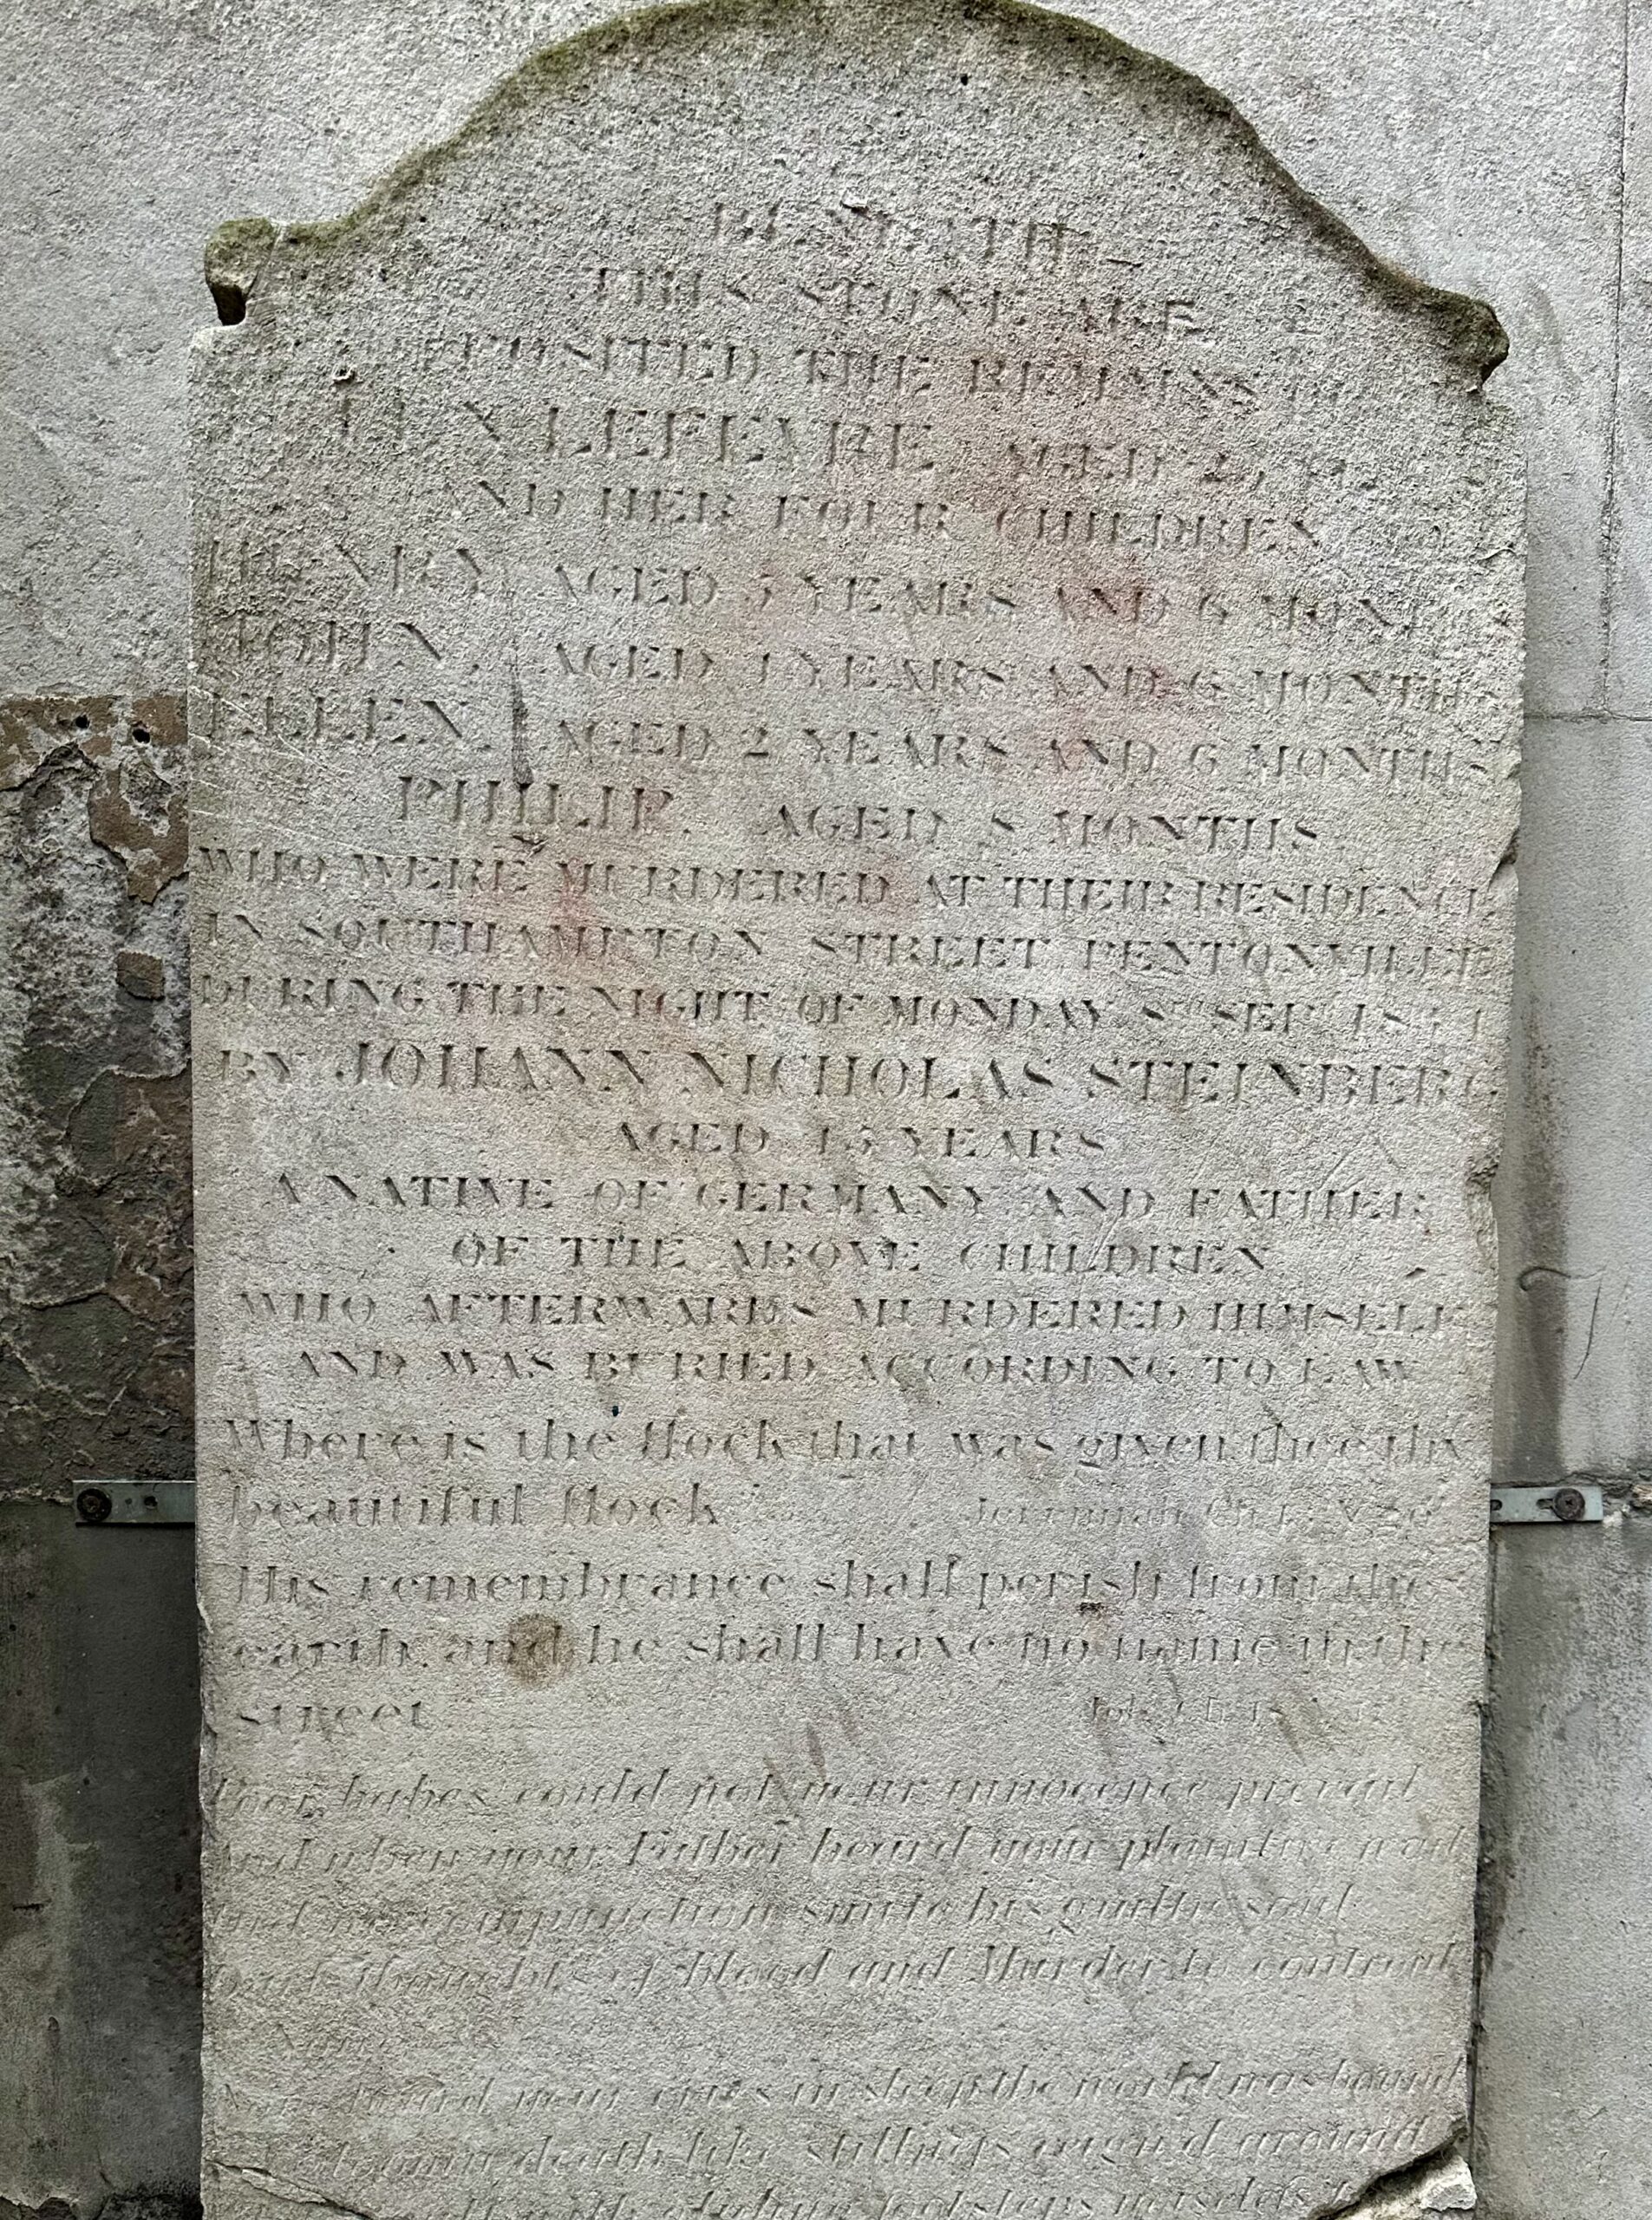 BENEATH
THIS STONE ARE
DEPOSITED THE REMAINS OF
ELLEN LEFEVRE AGED
AND HER FOUR CHILDREN
HENRY, AGED 5 YEARS AND 6 MONTHS
JOHN, AGED YEARS AND 6 MONTHS
ELLEN, AGED 2 YEARS AND 6 MONTHS
PHILIP, AGED 8 MONTHS
WHO WERE MURDERED AT THEIR RESIDENCE
IN SOUTHAMPTON STREET PENTONVILLE
DURING THE NIGHT OF MONDAY SEP
BY JOHANN NICHOLAS STEINBERG
AGED 45 YEARS
A NATIVE OF GERMANY AND FATHER
OF THE ABOVE CHILDREN
WHO AFTERWARDS MURDERED HIMSELF
AND WAS BURIED ACCORDING TO LAW
Where is the flock that was given thee thy
beautiful flock Jeremiah Ch V 20
His remembrance shall perish from the
earth, and he shall have no name in the
street. Job Ch
Poor babes could not your innocence prevail
And when your Father heard your plaintive wail
compunction smite his guilty soul
thoughts of blood and Murder to controul
heard your cries in sleep the world was bound
death like stillness reign'd around
footsteps